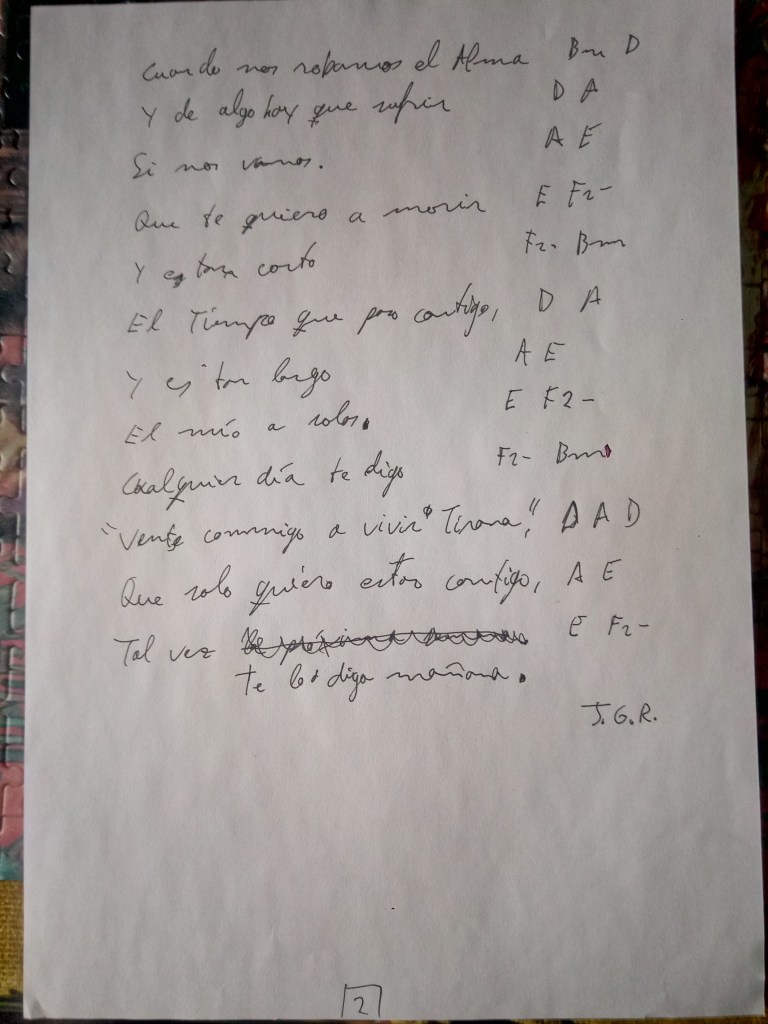 Cuando nos robamos el Alma Bm D
Y de algo hay que sufrir D A
Si nos vamos. A E
Que te quiero a morir E F2-
Y es tan corto F2- Bm
El Tiempo que paso contigo, D A
Y es tan largo A E
El mío a solas. E F2-
Cualquier día te digo F2- Bm
"Vente conmigo a vivir Tirana", D A D
Que solo quiero estar contigo, A E
Tal vez E F2-
te lo diga mañana.
J.G.R.
2